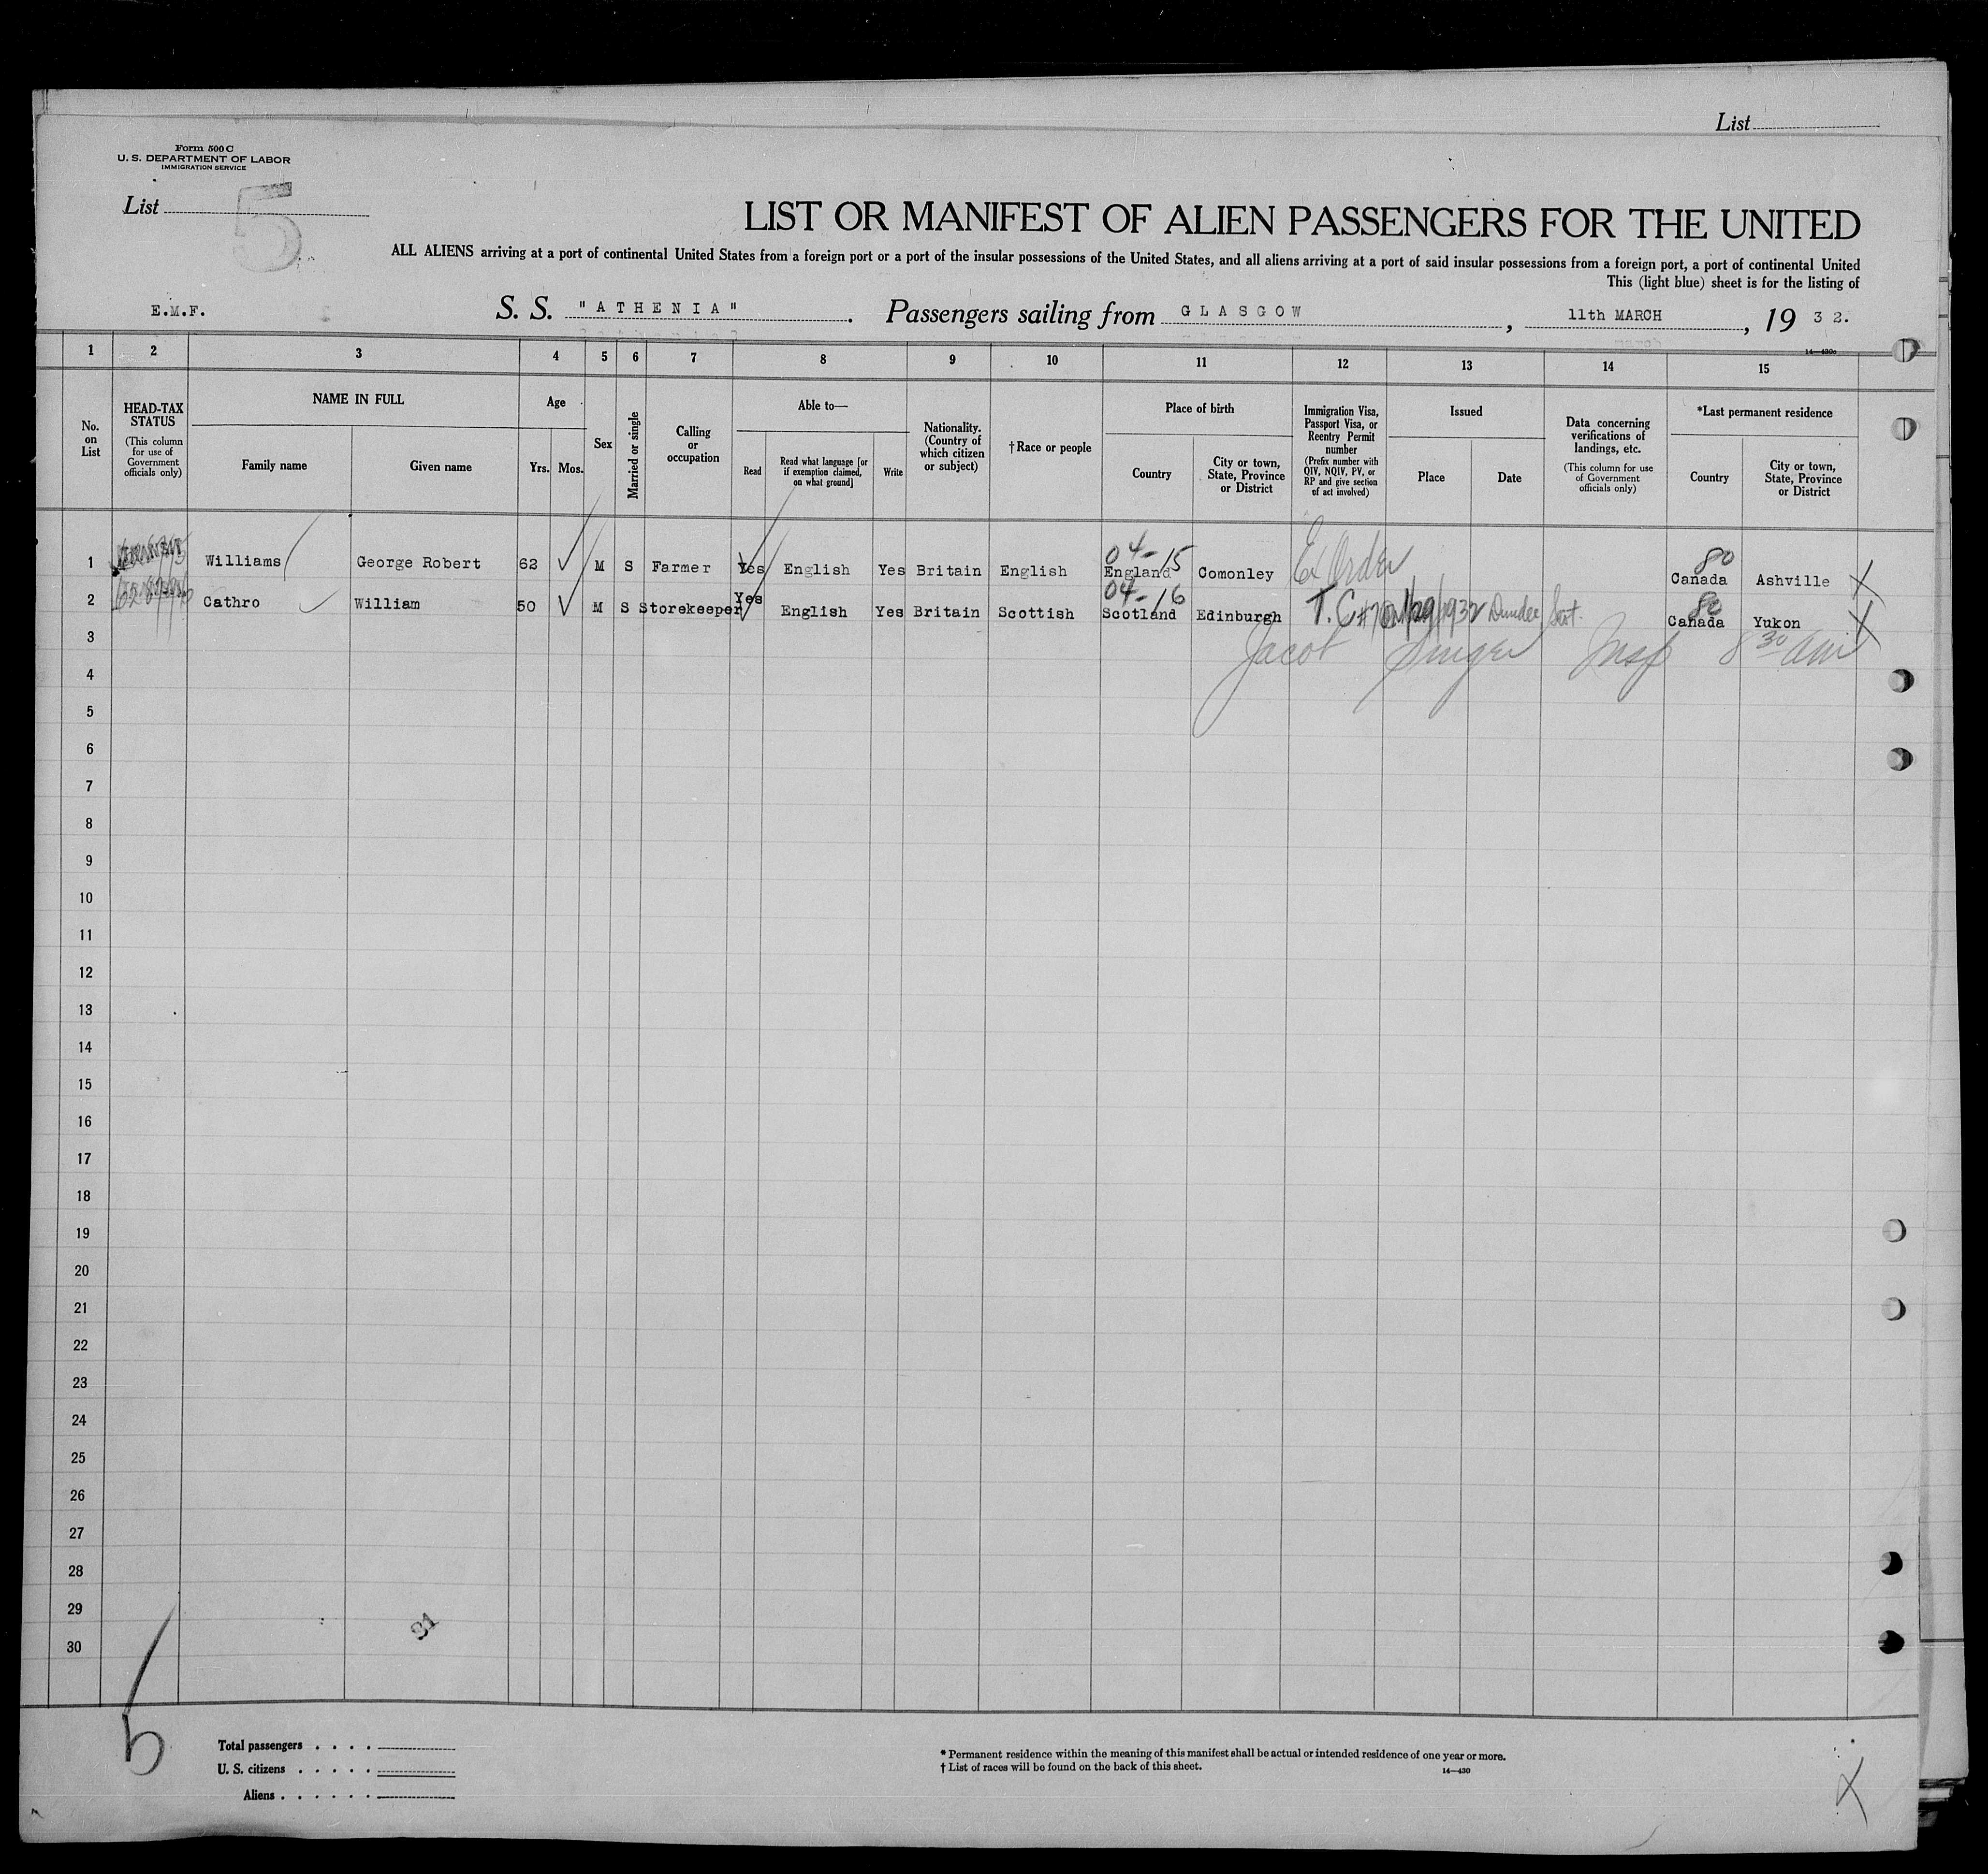 List
Form 500 C
U. S. DEPARTMENT OF LABOR
IMMIGRATION SERVICE
List 5
LIST OR MANIFEST OF ALIEN PASSENGERS FOR THE UNITED
ALL ALIENS arriving at a port of continental United States from a foreign port or a port of the insular possessions of the United States, and all aliens arriving at a port of said insular possessions from a foreign port, a port of continental United
This (light blue) sheet is for the listing of
E.M.F. S. S. "ATHENIA". Passengers sailing from GLASGOW, 11th MARCH, 19 32.
14—430c
1 2 3 4 5 6 7 8 9 10 11 12 13 14 15
No. on List
HEAD-TAX STATUS (This column for use of Government officials only)
NAME IN FULL
Family name
Given name
Age
Yrs.
Mos.
Sex
Married or single
Calling or occupation
Able to—
Read
Read what language [or if exemption claimed, on what ground]
Write
Nationality. (Country of which citizen or subject)
†Race or people
Place of birth
Country
City or town, State, Province or District
Immigration Visa, Passport Visa, or Reentry Permit number (Prefix number with QIV, NQIV, PV, or RP and give section of act involved)
Issued
Place
Date
Data concerning verifications of landings, etc. (This column for use of Government officials only)
*Last permanent residence
Country
City or town, State, Province or District
04-15 80
1 Williams George Robert 62 M S Farmer Yes English Yes Britain English England Comonley Ex Order Canada Ashville
04-16 80
2 Cathro William 50 M S Storekeeper Yes English Yes Britain Scottish Scotland Edinburgh T.C. 1932 Dundee Canada Yukon
3 Jacob Singer Insp 8 30 am
4
5
6
7
8
9
10
11
12
13
14
15
16
17
18
19
20
21
22
23
24
25
26
27
28
29
31
30
5
Total passengers . . . .
U. S. citizens . . . . .
Aliens . . . . . .
* Permanent residence within the meaning of this manifest shall be actual or intended residence of one year or more.
† List of races will be found on the back of this sheet.
14—430